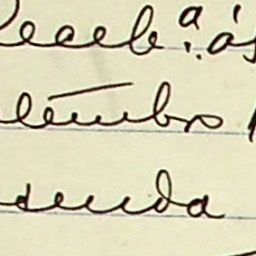 Receb.ª ás
tembro
senda